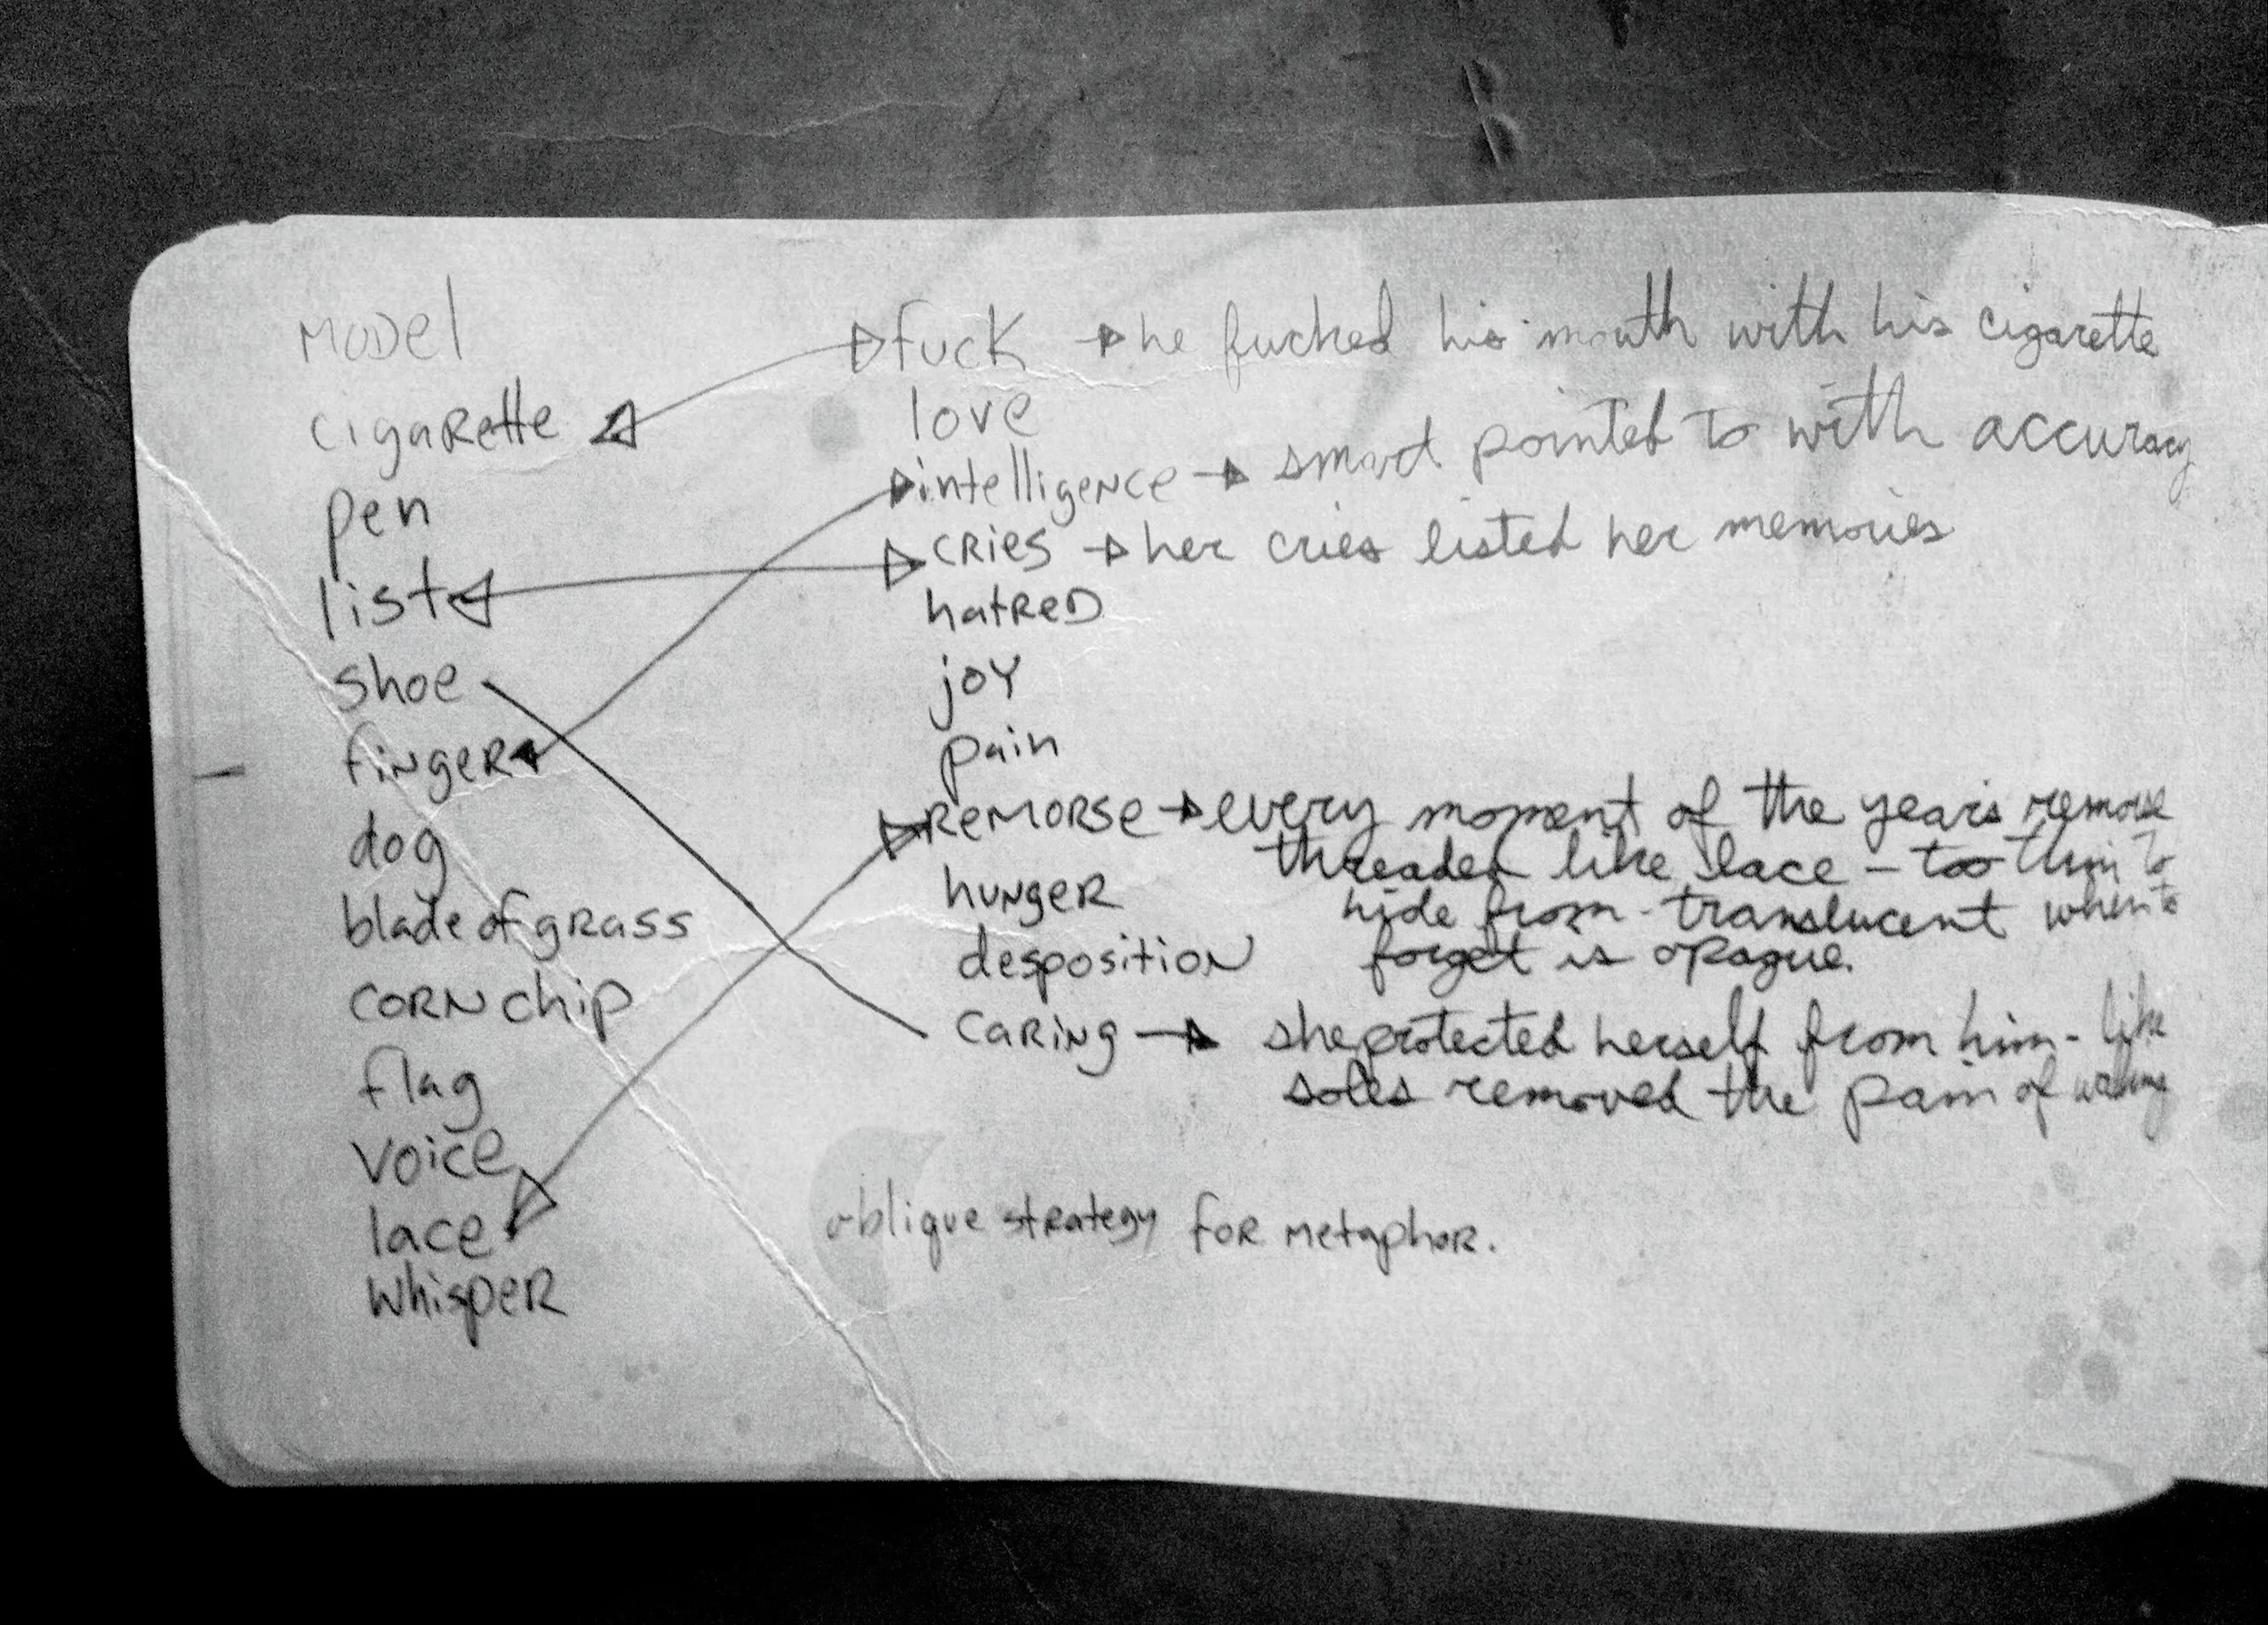 MODEl
cigaRette
pen
list
shoe
fiNgeR
dog
blade of gRass
CORN chip
flag
Voice
lace
WhispeR
fuck → he fucked his mouth with his cigarette
love
intelligeNce → smart pointed to with accuracy
CRies → her cries listed her memories
hatReD
joy
pain
ReMORSe → every moment of the years remorse
threaded like lace - too thin to
hide from - translucent when to
forget is opaque.
huNgeR
despositioN
CaRiNg → she protected herself from him - like
soles removed the pain of walking
oblique stRategy foR Metaphor.